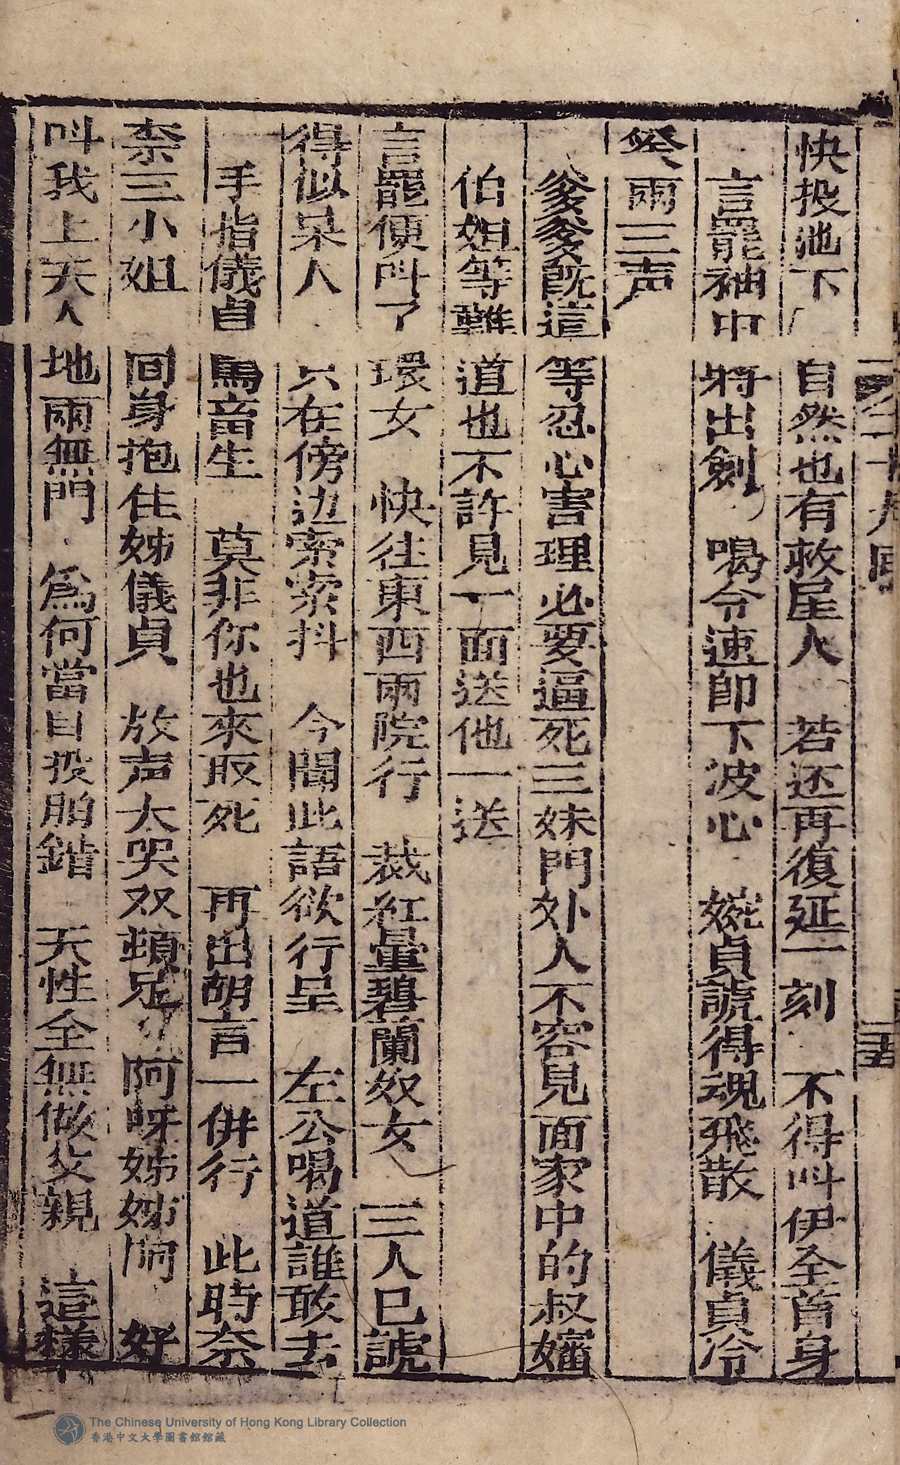 快投池下 自然也有救星人 若还再復延一刻 不得叫伊全首身
言罷袖中 將出劍 喝令速即下波心 婉貞諕得魂飛散 儀貞冷
笑兩三声
爹爹既這等忍心害理必要逼死三妹門外人不容見面家中的叔嬸
伯姐等難道也不許見一面送他一送
言罷便叫了環女 快往東西兩院行 裁紅量碧蘭奴女 三人已諕
得似呆人 只在傍边索索抖 今聞此語欲行呈 左公喝道誰敢去
手指儀貞 罵畜生 莫非你也來取死 再出胡言一併行 此時奈
柰三小姐 回身抱住姊儀貞 放声大哭双頓足 阿呀姊姊阿 好
叫我上天入地兩無門 為何當日投胎錯 天性全無做父親 這樣
The Chinese University of Hong Kong Library Collection
香港中文大學圖書館館藏